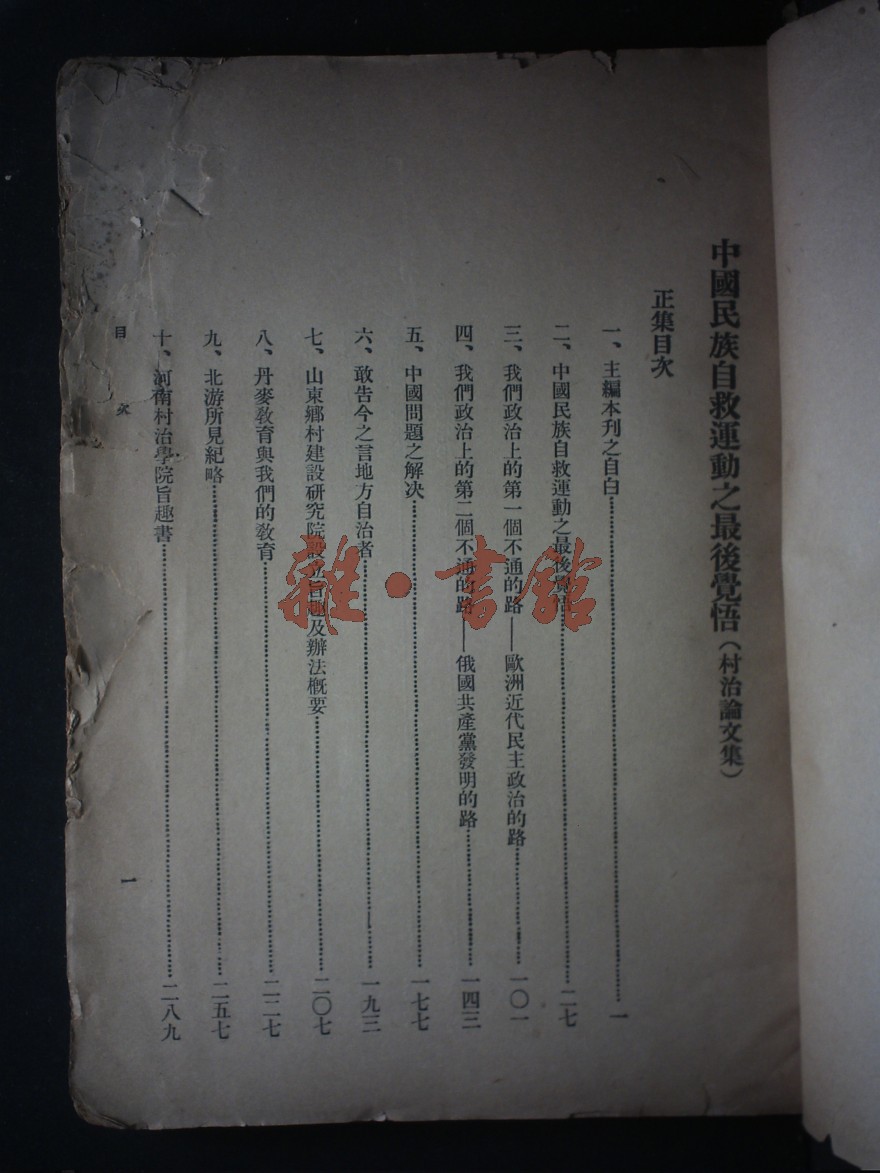 中國民族自救運動之最後覺悟（村治論文集）
正集目次
一、主編本刊之自白……一
二、中國民族自救運動之最後覺悟……二七
三、我們政治上的第一個不通的路——歐洲近代民主政治的路……一〇一
四、我們政治上的第二個不通的路——俄國共產黨發明的路……一四三
五、中國問題之解決……一七七
六、敢告今之言地方自治者……一九三
七、山東鄉村建設研究院設立旨趣及辦法概要……二〇七
八、丹麥教育與我們的教育……二二七
九、北游所見紀略……二五七
十、河南村治學院旨趣書……二八九
目次
一
雜·書館